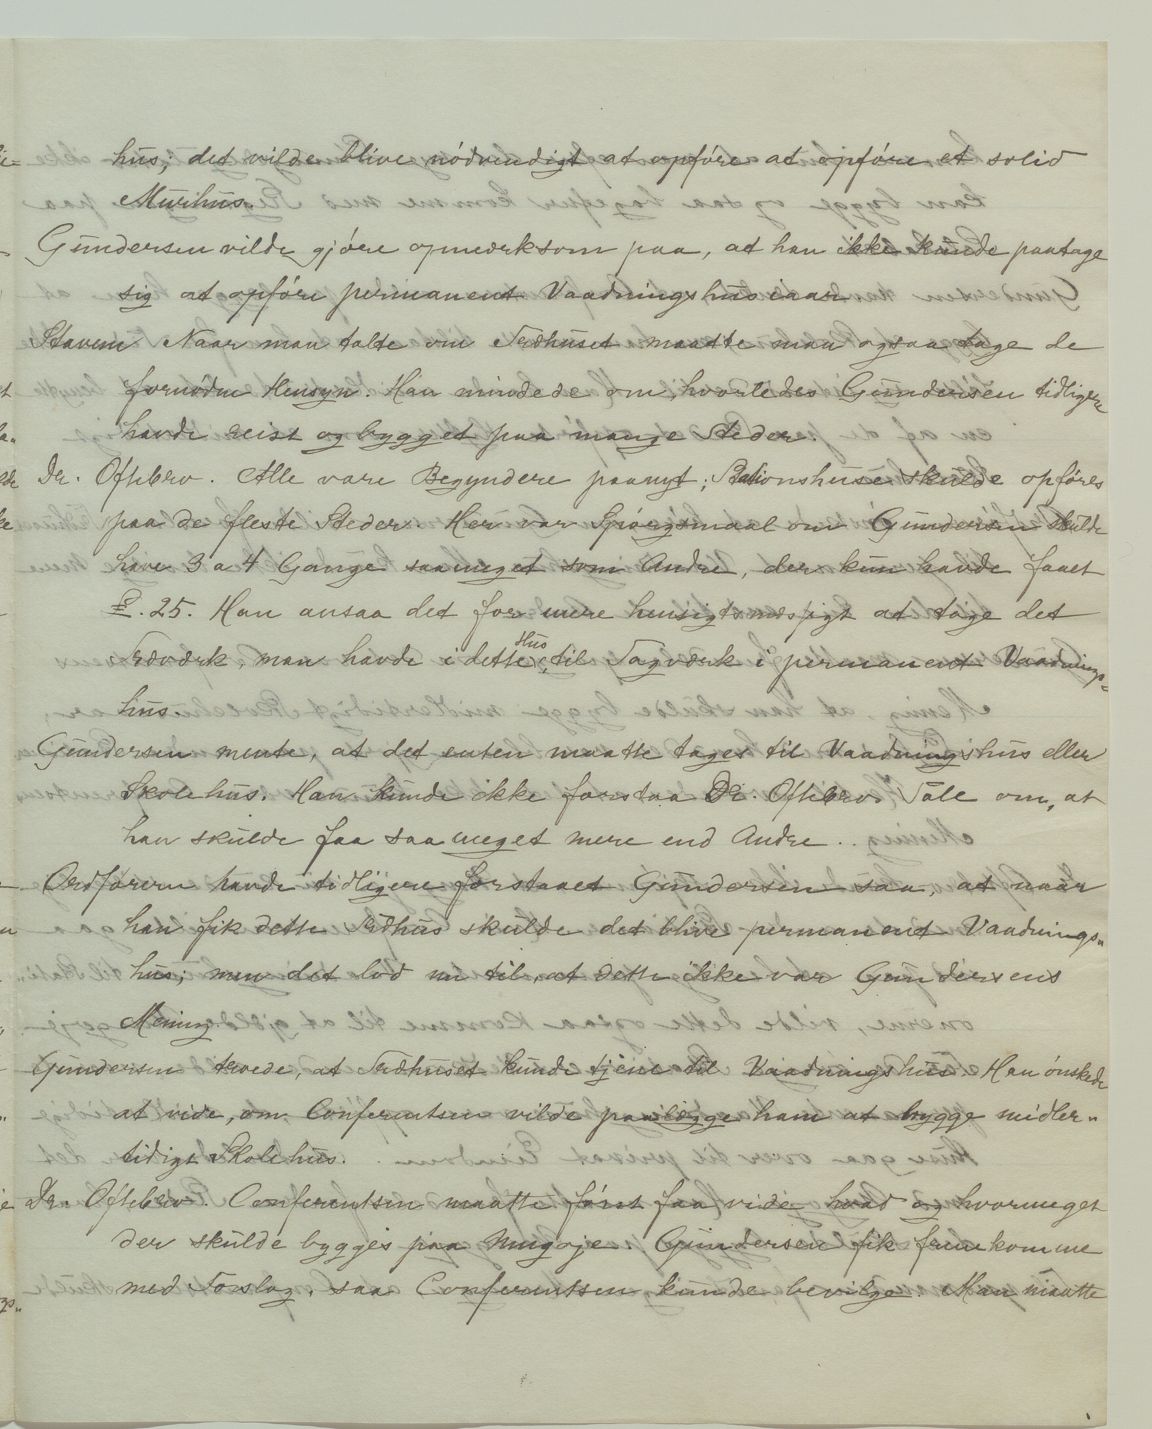 hus; det vilde blive nödvendigt at opføre at opføre et solid
Murhus.
Gundersen vilde gjøre opmærksom paa, at han ikke kunde paatage
sig at opføre permanent Vaaningshus iaar.
Stavem. Naar man talte om Træhuset maatte man ogsaa tage de
fornødne Hensyn. Han mindede om, hvorledes Gundersen tidligere
havde reist og bygget paa mange Steder.
Dr. Oftebro. Alle vare Begyndere paanyt; Stationshuse skulde opføres
paa de fleste Steder. Her var Spørgsmaal om Gundersen skulde
have 3 a 4 Gange saameget som Andre, der kun havde faaet
£. 25. Han ansaa det for mere hensigtsmæssigt at tage det
Træværk, man havde i dette Hus til Tagværk i permanent Vaanings-
hus.
Gundersen mente, at det enten maatte tages til Vaadningshus eller
Skolehus. Han kunde ikke forstaa Dr. Oftebros Tale om, at
han skulde faa saa meget mere end Andre.
Ordføreren havde tidligere forstaaet Gundersen saa, at naar
han fik dette Træhus skulde det blive permanent Vaadnings„
hus; men det lod nu til, at dette ikke var Gundersens
Mening
Gundersen troede, at Træhuset kunde tjene til Vaadningshus. Han ønskede
at vide, om Conferentsen vilde paalægge ham at bygge midler„
tidigt Skolehus.
Dr. Oftebro. Conferentsen maatte først faa vide hvad og hvormeget
der skulde bygges paa Mugoje. Gundersen fik fremkomme
med Forslag, saa Conferentsen kunde bevilge. Man maatte